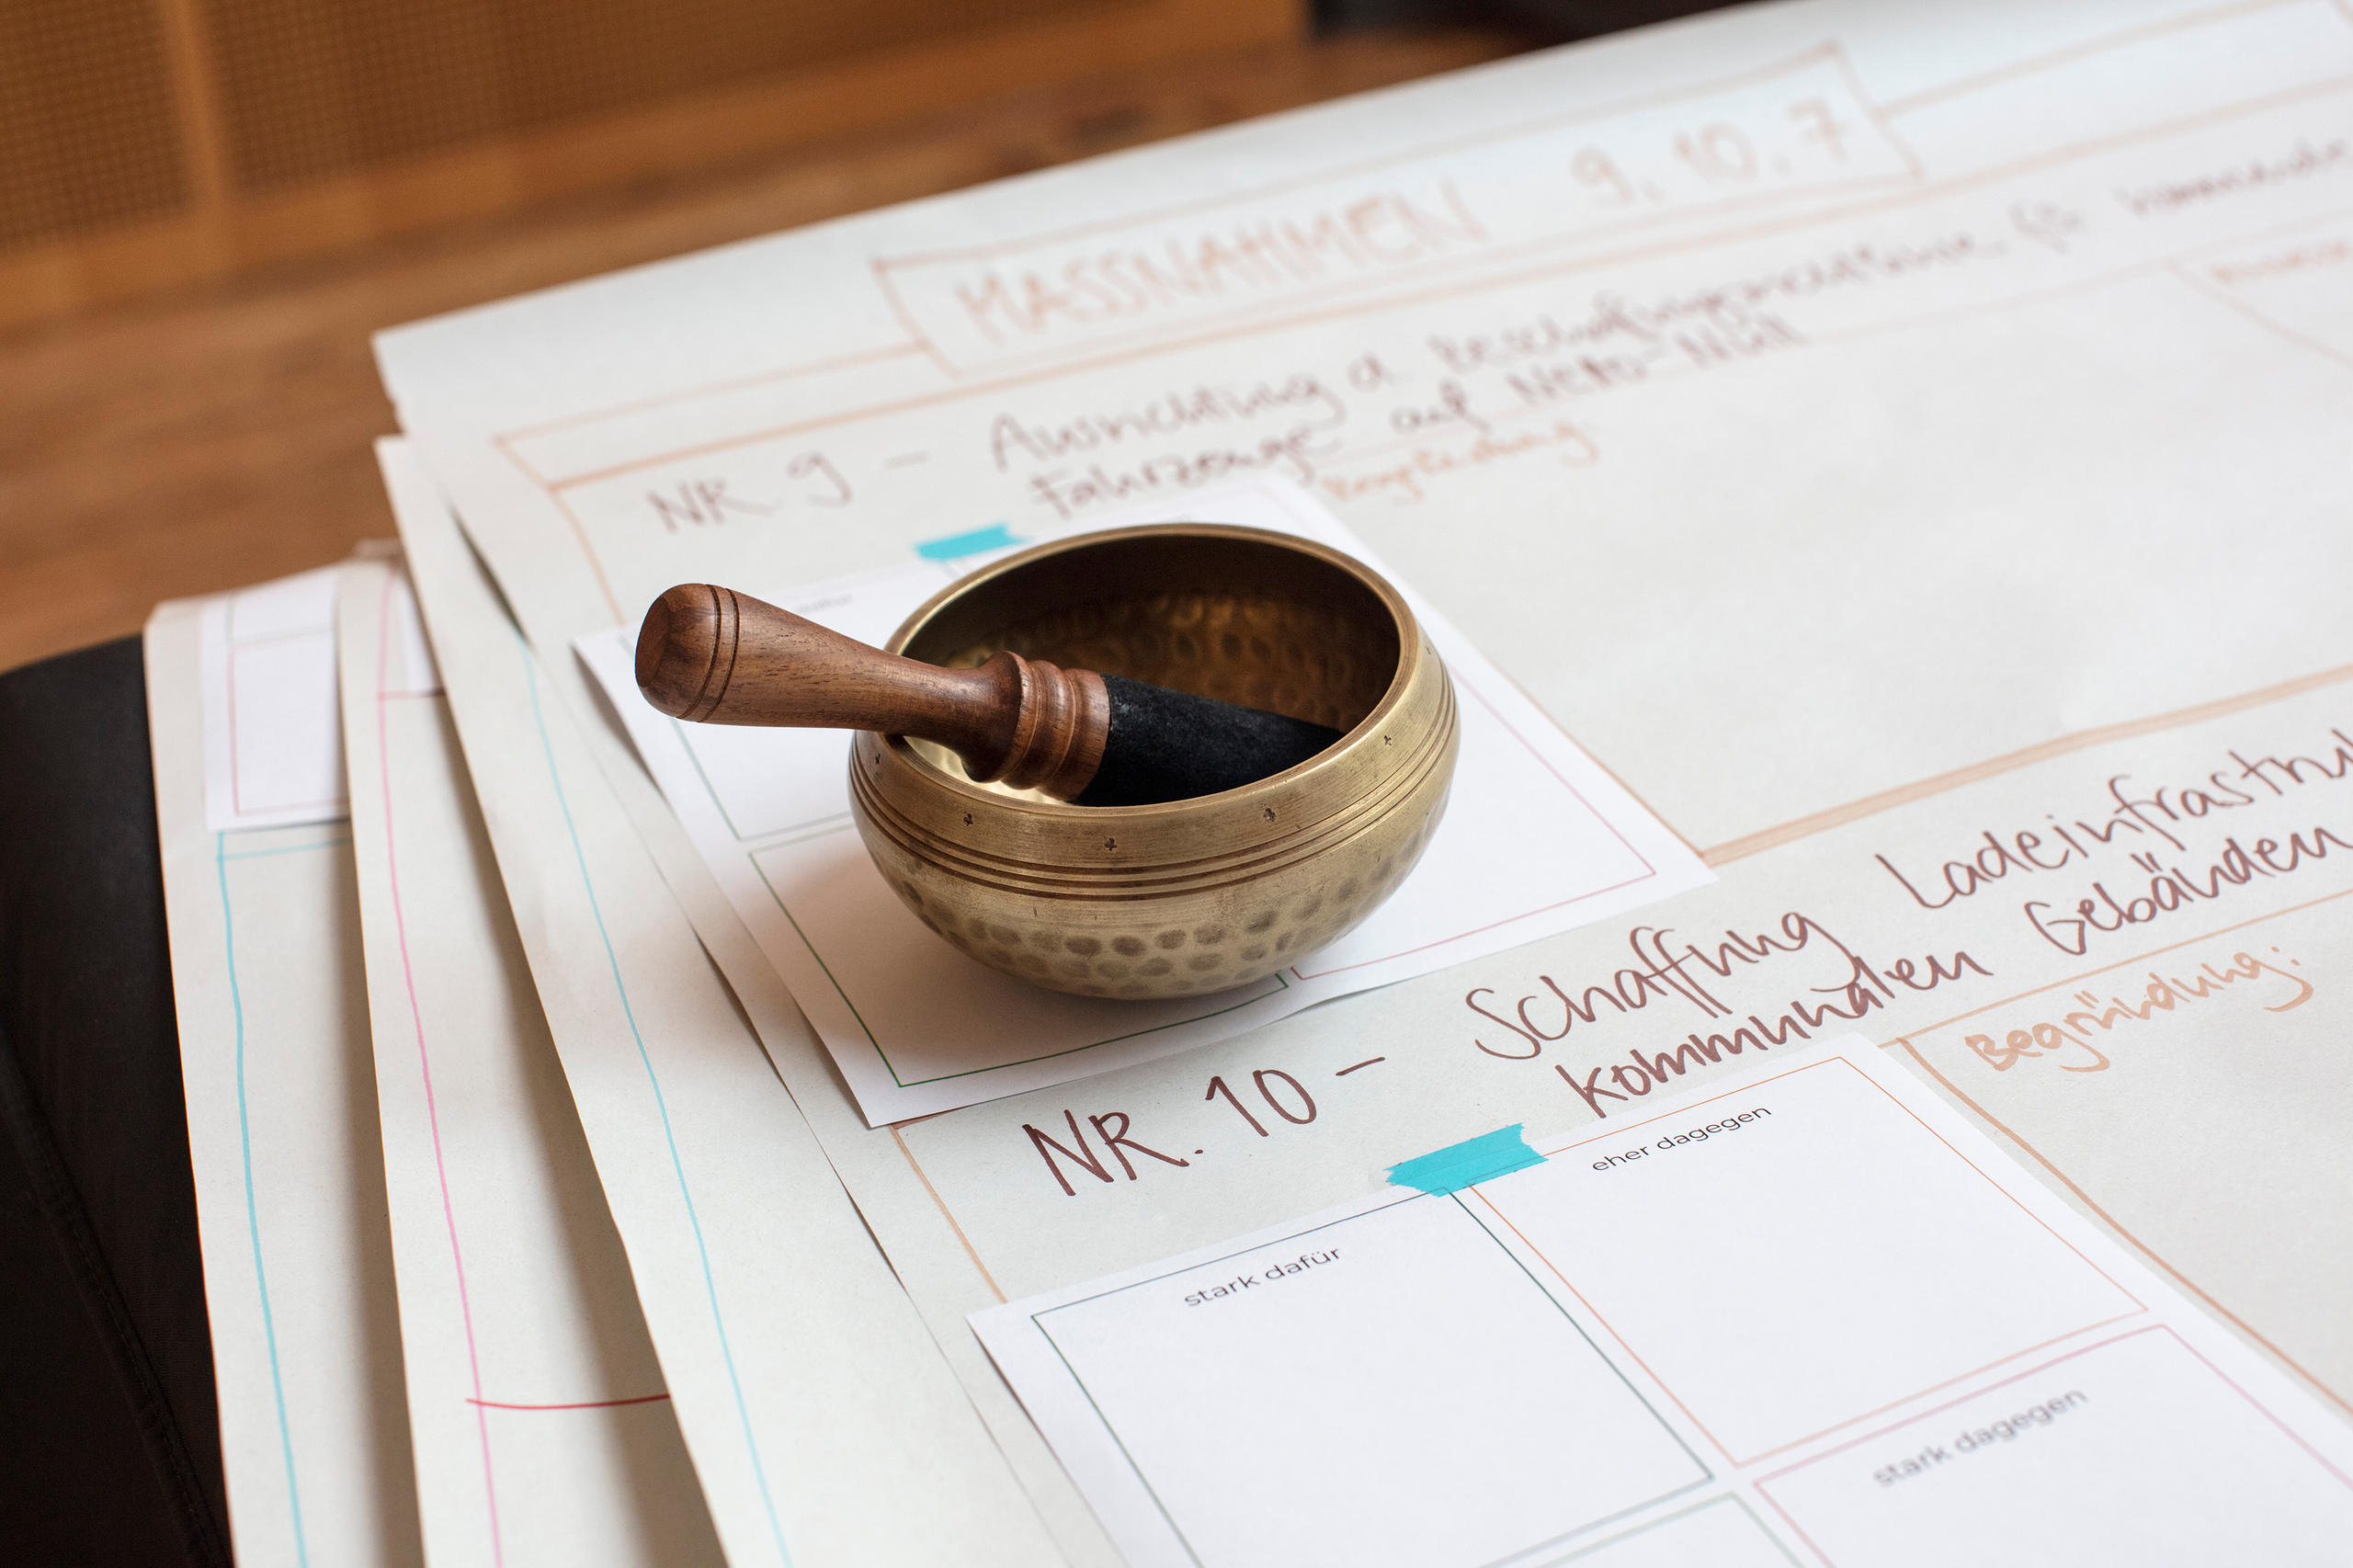 MASSNAHMEN 9, 10, 7
NR 9 - Ausrichtung d Beschaffungsrichtlinie für kommunale
Fahrzeuge auf Netto-Null
Begründung:
NR. 10 - Schaffung Ladeinfrastruk
kommunalen Gebänden
Begründung:
eher dagegen
stark dafür
stark dagegen